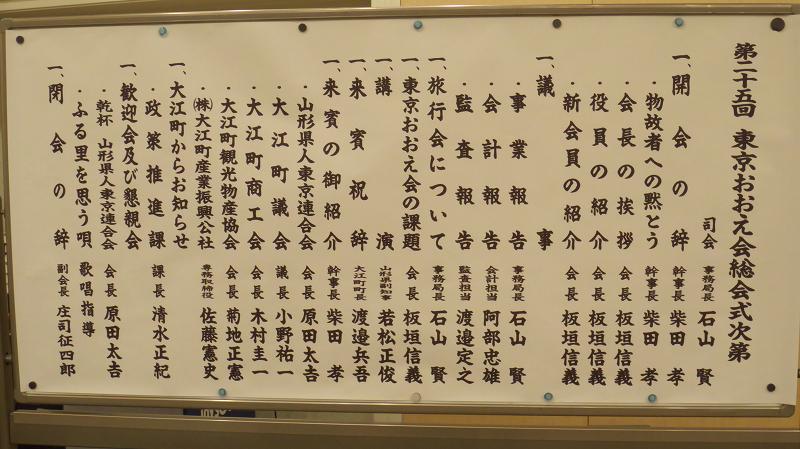 第二十五回 東京おおえ会総会式次第
司会 事務局長 石山 賢
一、開会の辞 幹事長 柴田 孝
・物故者への黙とう 幹事長 柴田 孝
・会長の挨拶 会長 板垣信義
・役員の紹介 会長 板垣信義
・新会員の紹介 会長 板垣信義
一、議事
・事業報告 事務局長 石山 賢
・会計報告 会計担当 阿部忠雄
・監査報告 監査担当 渡邉定之
一、旅行会について 事務局長 石山 賢
一、東京おおえ会の課題 会長 板垣信義
一、講演 山形県副知事 若松正俊
一、来賓祝辞 大江町町長 渡邉兵吾
一、来賓の御紹介 幹事長 柴田 孝
・山形県人東京連合会 会長 原田太吉
・大江町議会 議長 小野祐一
・大江町商工会 会長 木村圭一
・大江町観光物産協会 会長 菊地正憲
・㈱大江町産業振興公社 専務取締役 佐藤憲史
一、大江町からお知らせ
・政策推進課 課長 清水正紀
一、歓迎会及び懇親会
・乾杯 山形県人東京連合会 会長 原田太吉
・ふる里を思う唄 歌唱指導
一、閉会の辞 副会長 庄司征四郎